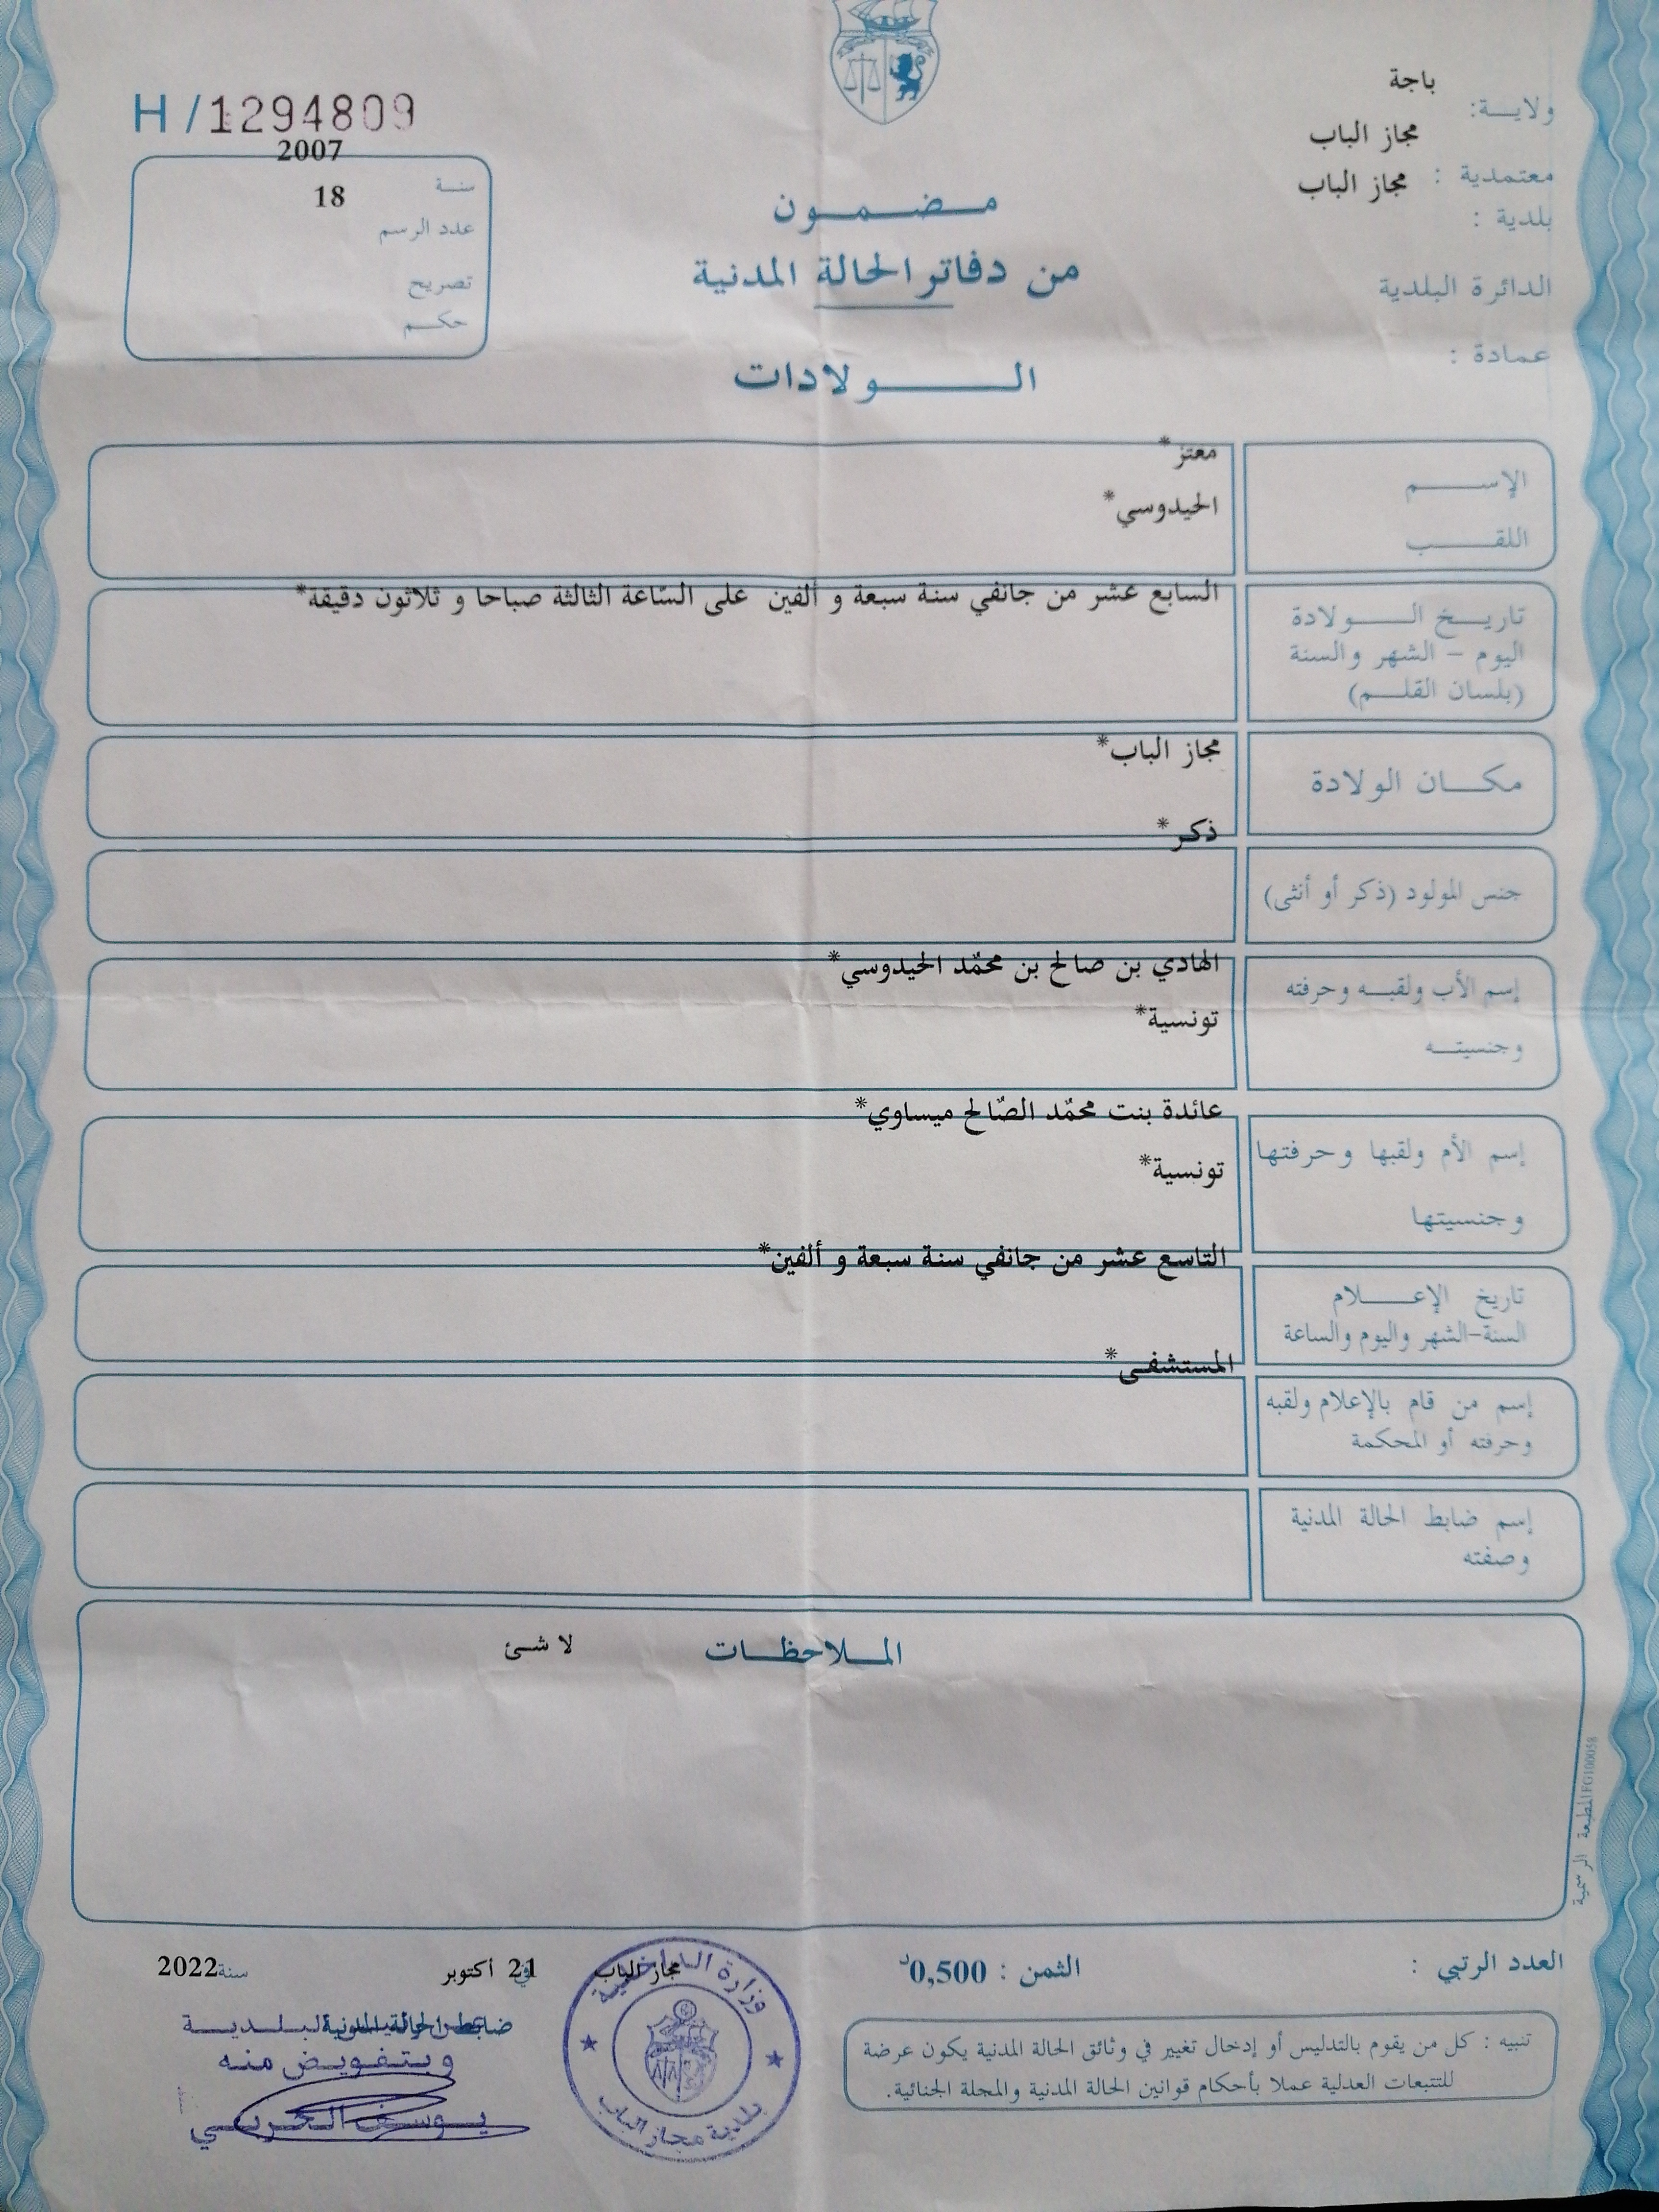 باجة
ولايـــة:
مجاز الباب
معتمدية :
مجاز الباب
بلدية :
الدائرة البلدية
عمادة :
H /1294809
2007
سنــة
18
عدد الرسم
تصريح
حكــم
مـضـمـون
من دفاتر الحالة المدنية
الـــولادات
الإســـم
معتز*
اللقـــب
الحيدوسي*
تاريــخ الـــولادة
اليوم – الشهر والسنة
(بلسان القلــم)
السابع عشر من جانفي سنة سبعة و ألفين على السّاعة الثالثة صباحا و ثلاثون دقيقة*
مكــان الولادة
مجاز الباب*
جنس المولود (ذكر أو أنثى)
ذكر*
إسم الأب ولقبــه وحرفته
وجنسيتــه
الهادي بن صالح بن محمّد الحيدوسي*
تونسية*
إسم الأم ولقبها وحرفتها
وجنسيتها
عائدة بنت محمّد الصّالح ميساوي*
تونسية*
تاريخ الإعـــلام
السنة-الشهر واليوم والساعة
التاسع عشر من جانفي سنة سبعة و ألفين*
إسم من قام بالإعلام ولقبه
وحرفته أو المحكمة
المستشفى*
إسم ضابط الحالة المدنية
وصفته
المــلاحظــات
لا شئ
المطبعة الرسمية FG100058
العدد الرتبي :
الثمن : 0,500د
مجاز الباب
في 21 أكتوبر
سنة 2022
ضابط الحالة المدنية
وبتفويض منه
يوسف الحربي
وزارة الداخلية
بلدية مجاز الباب
تنبيه : كل من يقوم بالتدليس أو إدخال تغيير في وثائق الحالة المدنية يكون عرضة
للتتبعات العدلية عملا بأحكام قوانين الحالة المدنية والمجلة الجنائية.